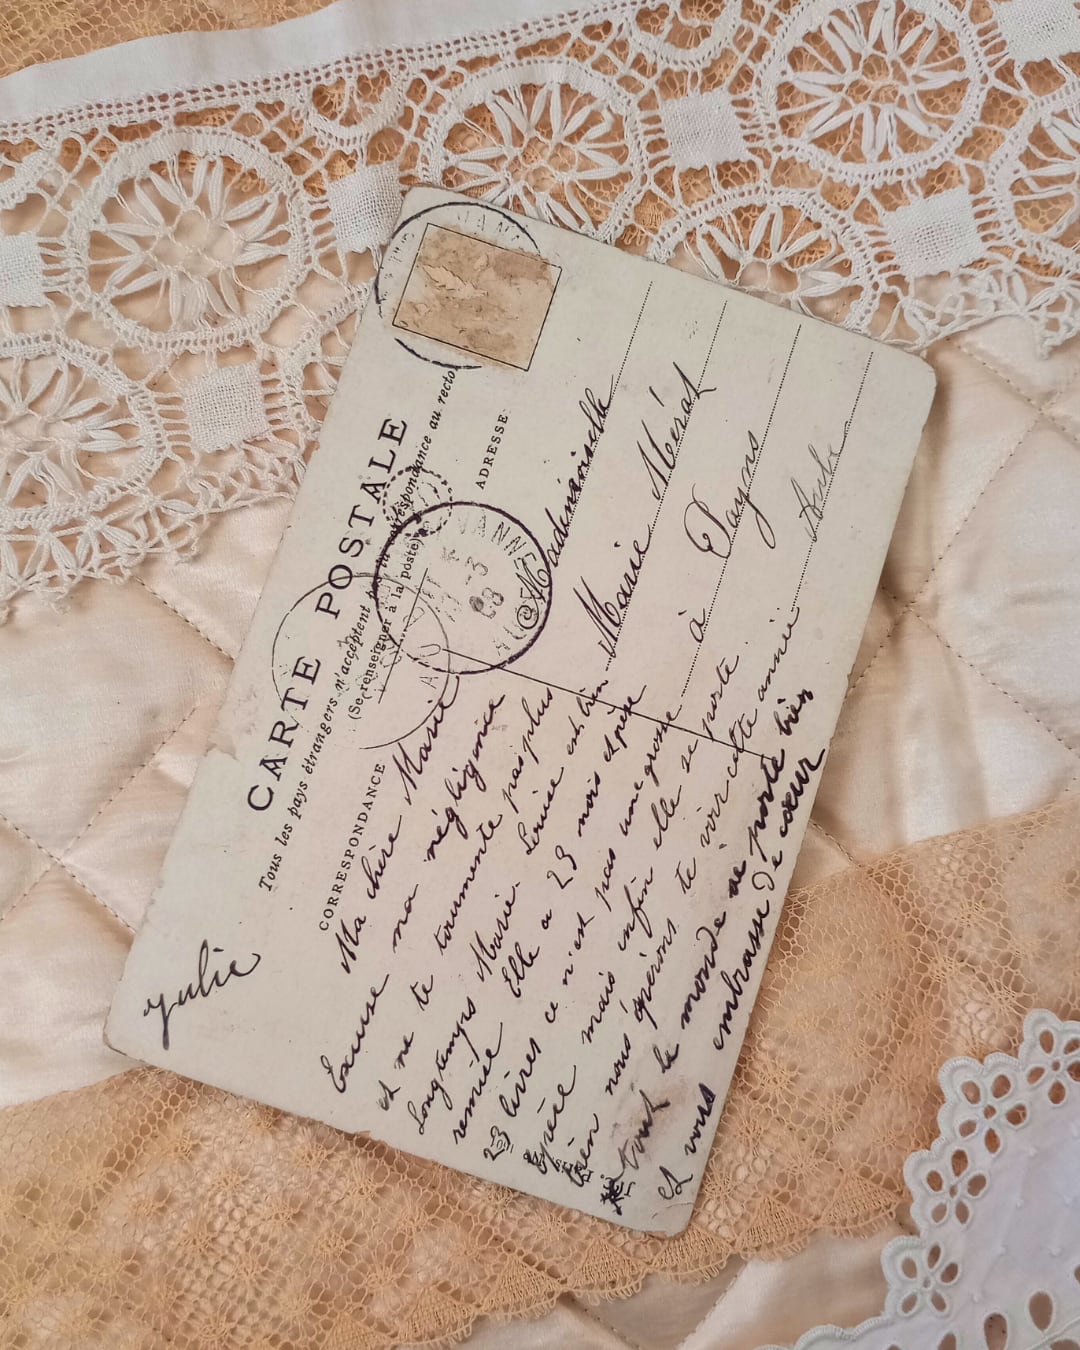 CARTE POSTALE
Tous les pays étrangers n'acceptent pas la correspondance au recto
(Se renseigner à la poste)
CORRESPONDANCE
ADRESSE
Mademoiselle
Marie Mérat
à Payns
Aube
Ma chère Marie
Excuse ma négligence
et ne te tourmente pas plus
longtemps Marie. Louise est bien
remise Elle a 23 mois et pèse
23 livres ce n'est pas une grosse
mais enfin elle se porte
bien nous éspérons te voir cette année
tout le monde se porte bien
et vous embrasse de cœur
Julie
VANNE